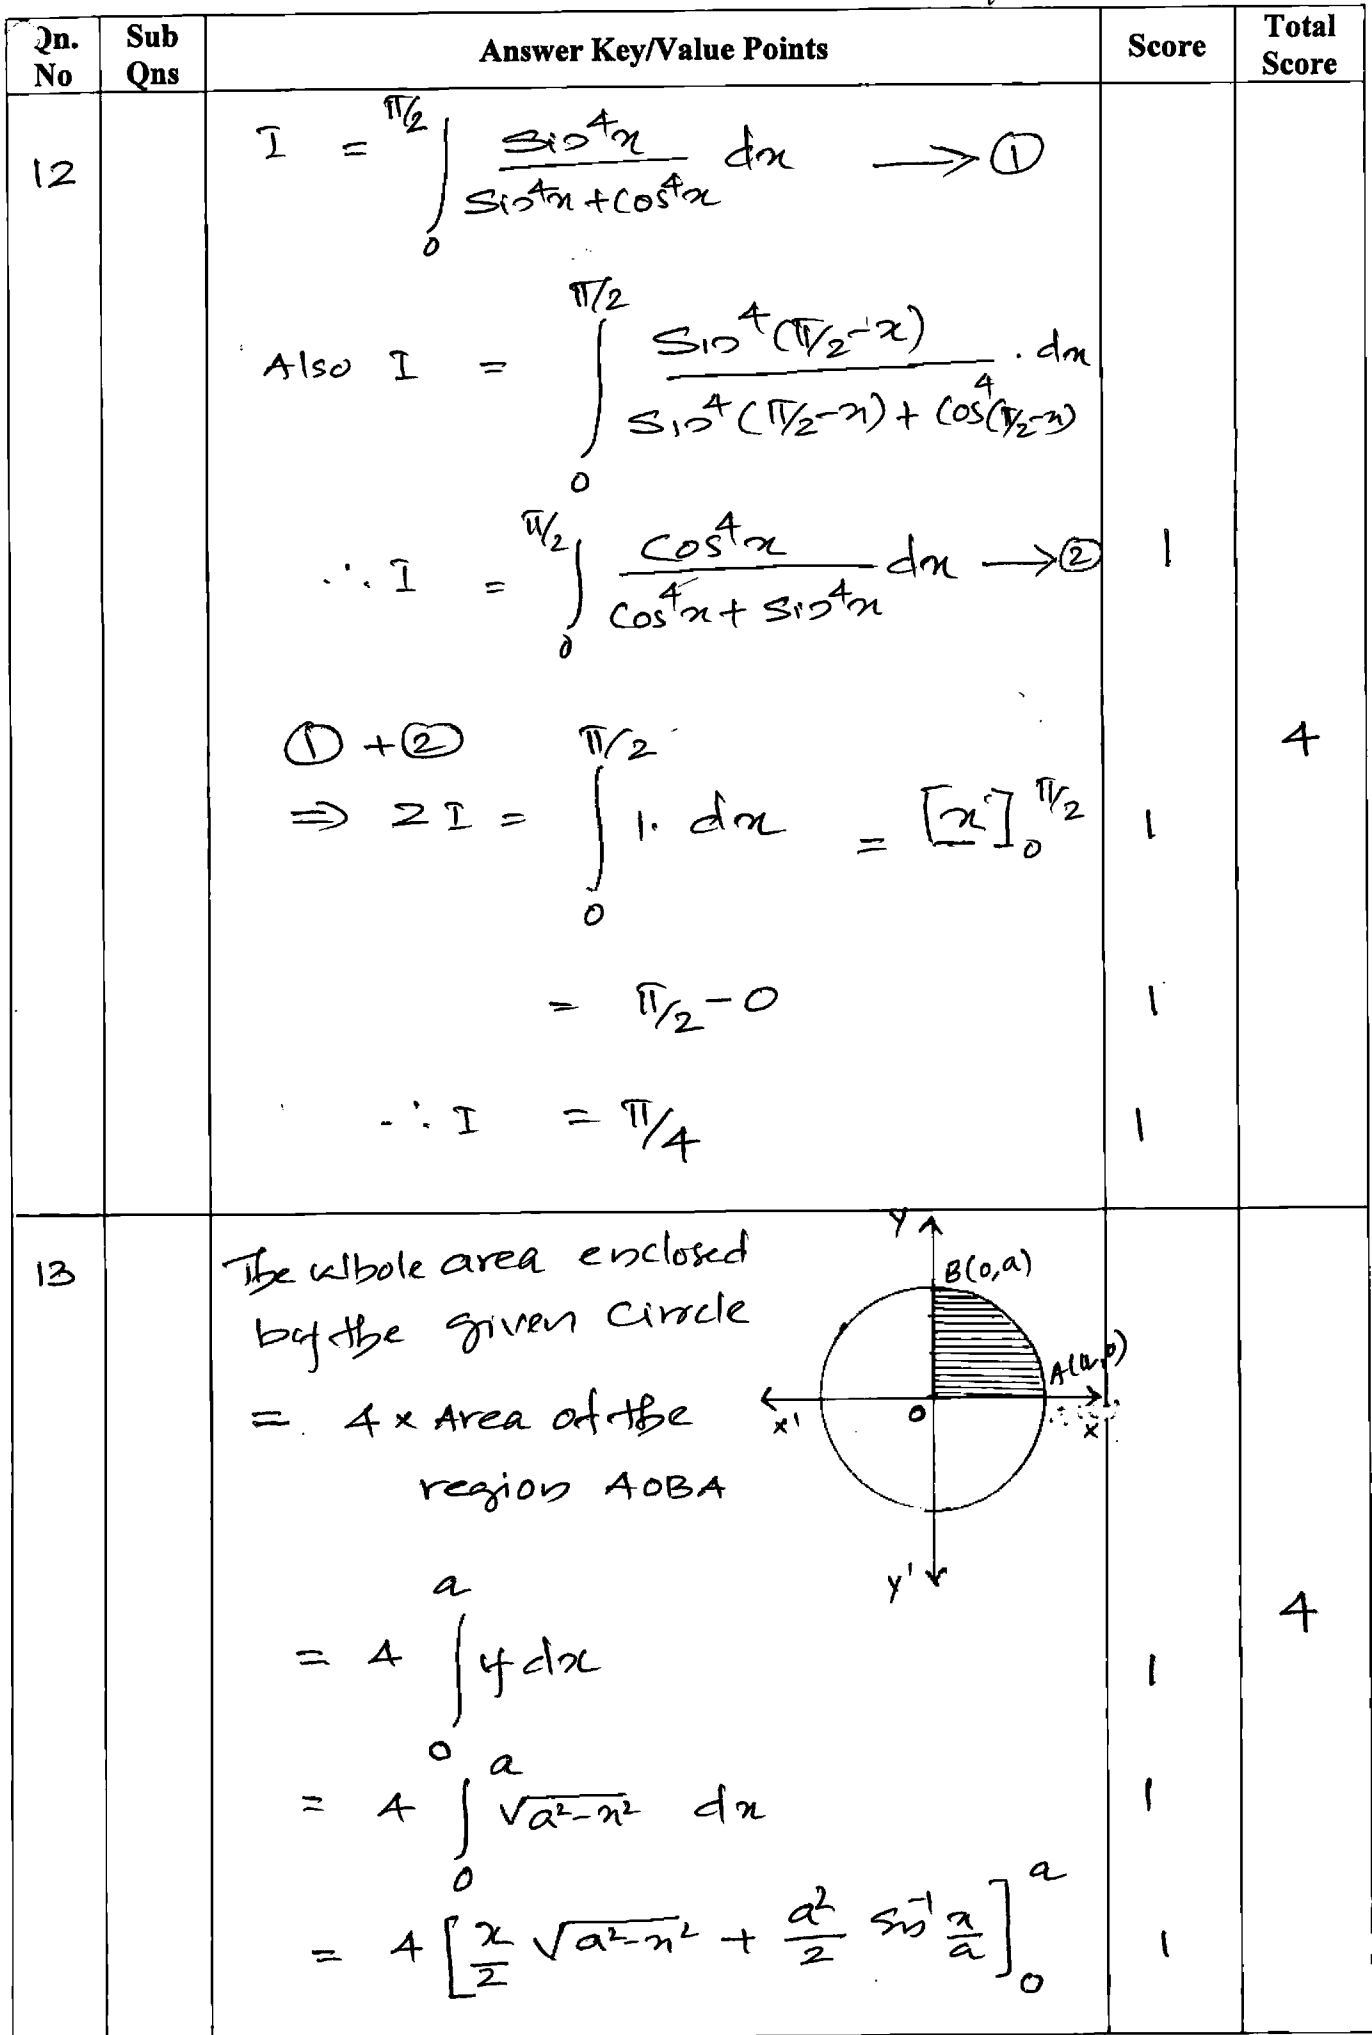 Qn. No | Sub Qns | Answer Key/Value Points | Score | Total Score
12
I = ∫₀^{π/2} sin⁴x / (sin⁴x + cos⁴x) dx → ①
Also I = ∫₀^{π/2} sin⁴(π/2-x) / (sin⁴(π/2-x) + cos⁴(π/2-x)) . dx
∴ I = ∫₀^{π/2} cos⁴x / (cos⁴x + sin⁴x) dx → ② 1
① + ② 4
⇒ 2I = ∫₀^{π/2} 1. dx = [x]₀^{π/2} 1
= π/2 - 0 1
∴ I = π/4 1
13
The whole area enclosed
by the given circle
= 4 x Area of the
region AOBA
Y
B(0,a)
A(a,0)
x' O x
y'
4
= 4 ∫₀^a y dx 1
= 4 ∫₀^a √(a²-x²) dx 1
= 4 [x/2 √(a²-x²) + a²/2 sin⁻¹ x/a]₀^a 1